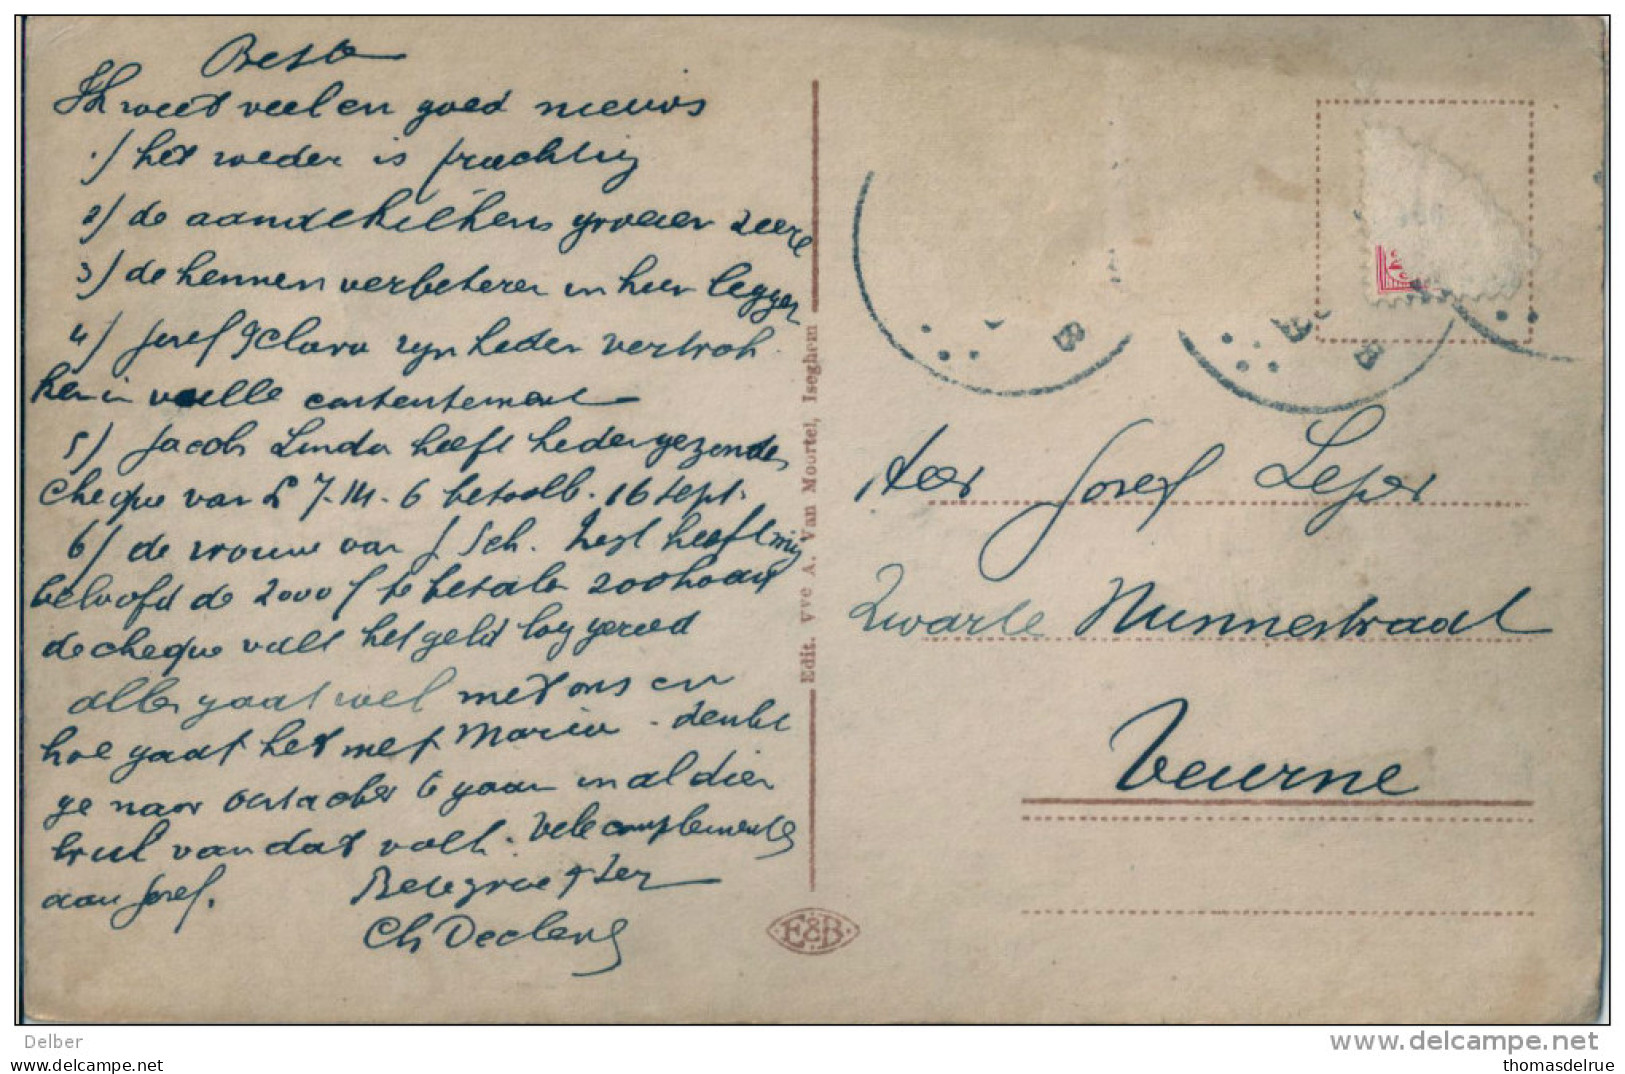 Beste
Ik weet veel en goed nieuws
1/ het weder is prachtig
2/ de aandekiekens groeien zeere
3/ de hennen verbeteren in hun leggen
4/ Josef & Clara zyn heden vertrok
ken in volle contentement
5/ Jacob Linda heeft heden gezonden
Cheque van £ 7-14-6 betaalb. 16 sept.
6/ de vrouw van J Sch. heeft mij
beloofd de 2000 f te betalen zoohaast
de cheque valt het geld lag gereed
alles gaat wel met ons en
hoe gaat het met Maria - denkt
ge naar Oostacker te gaan in al dien
van dat volk. Vele complementen
aan Josef. Beste groeten
Ch Declercq
Edit. Vve A. Van Moortel, Iseghem
E&B
Heer Josef Leper
Zwarte Nunnestraat
Veurne
B
B
B
2
Delber
www.delcampe.net
thomasdelrue